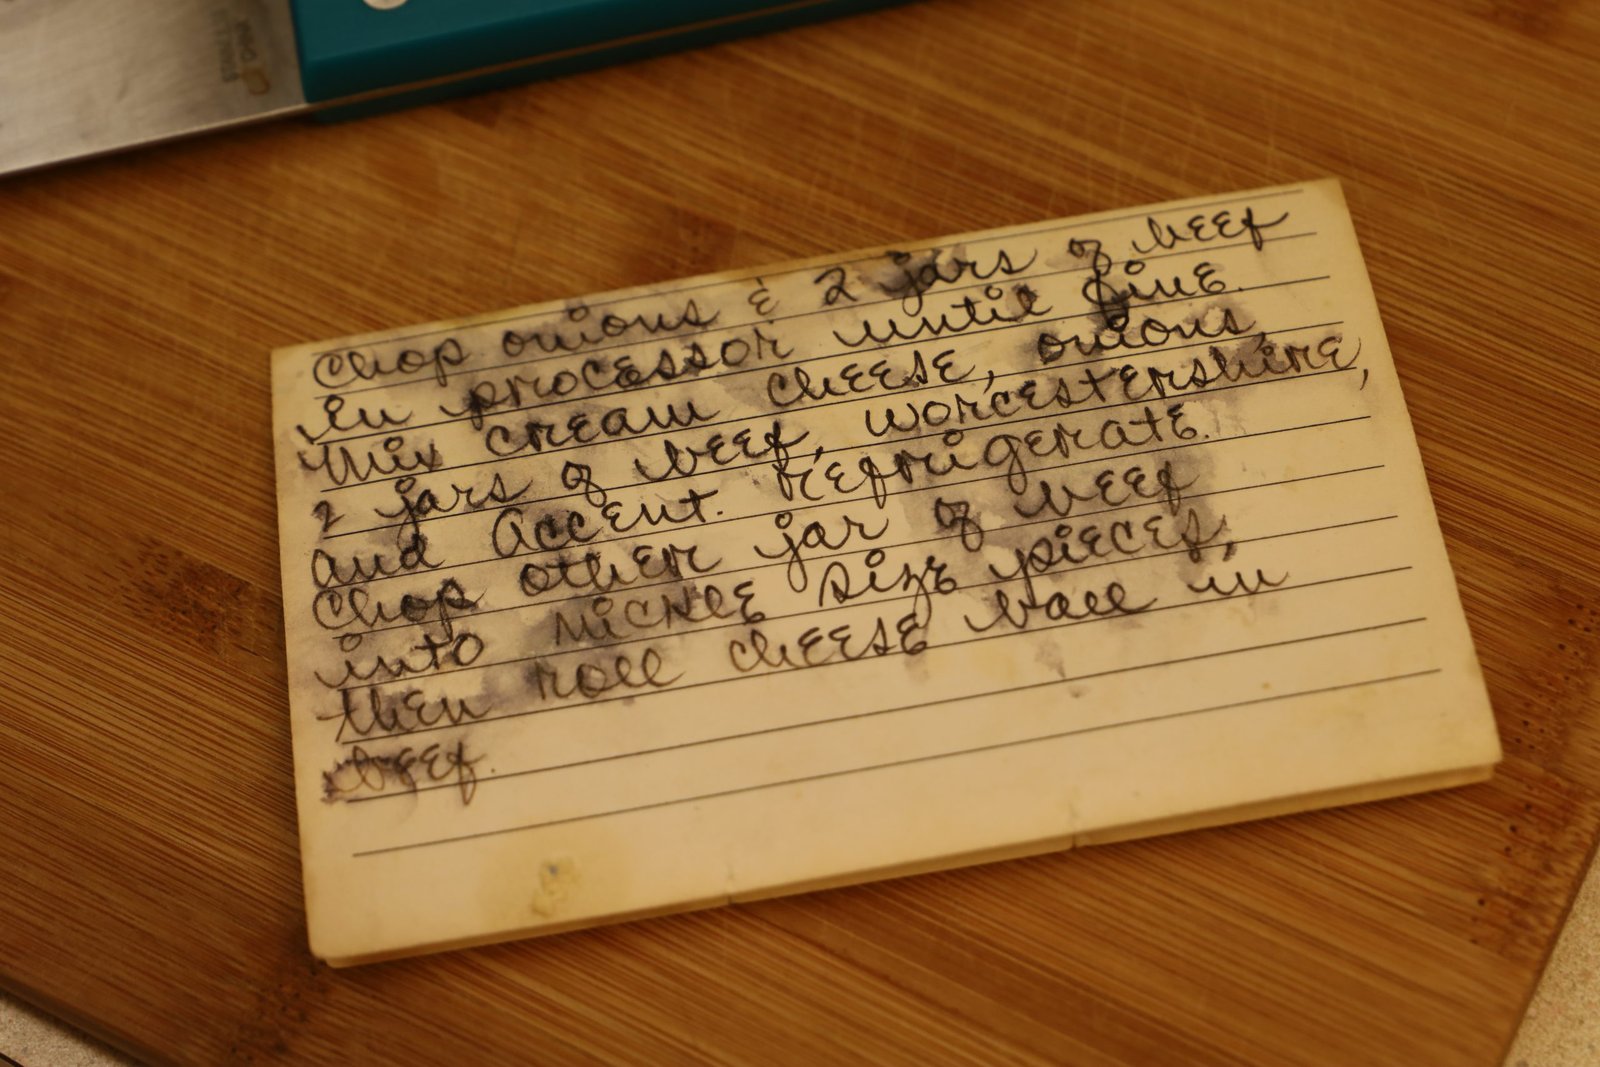 Chop onions & 2 jars of beef
in processor until fine.
Mix cream cheese, onions,
2 jars of beef, worcestershire,
and Accent. Refrigerate.
Chop other jar of beef
into nickle size pieces,
then roll cheese ball in
beef.